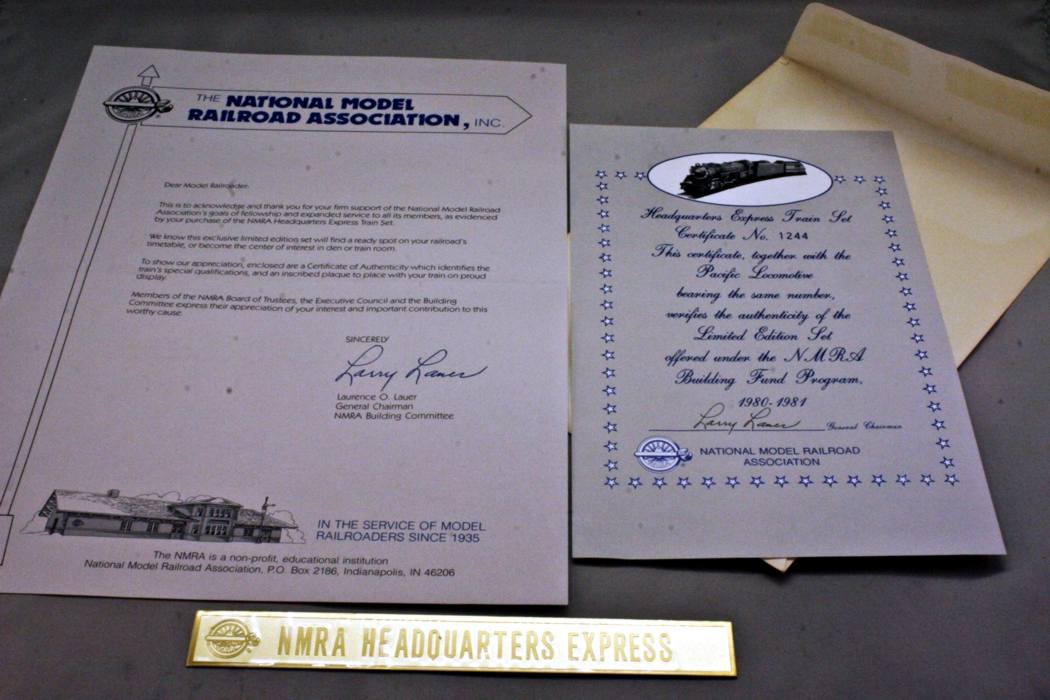 THE NATIONAL MODEL
RAILROAD ASSOCIATION, INC.
Dear Model Railroader:
This is to acknowledge and thank you for your firm support of the National Model Railroad
Association's goals of fellowship and expanded service to all its members, as evidenced
by your purchase of the NMRA Headquarters Express Train Set.
We know this exclusive limited edition set will find a ready spot on your railroad's
timetable, or become the center of interest in den or train room.
To show our appreciation, enclosed are a Certificate of Authenticity which identifies the
train's special qualifications, and an inscribed plaque to place with your train on proud
display.
Members of the NMRA Board of Trustees, the Executive Council and the Building
Committee express their appreciation of your interest and important contribution to this
worthy cause.
SINCERELY
Larry Lauer
Laurence O. Lauer
General Chairman
NMRA Building Committee
IN THE SERVICE OF MODEL
RAILROADERS SINCE 1935
The NMRA is a non-profit, educational institution
National Model Railroad Association, P.O. Box 2186, Indianapolis, IN 46206
Headquarters Express Train Set
Certificate No. 1244
This certificate, together with the
Pacific Locomotive
bearing the same number,
verifies the authenticity of the
Limited Edition Set
offered under the NMRA
Building Fund Program,
1980-1981
Larry Lauer General Chairman
NATIONAL MODEL RAILROAD
ASSOCIATION
NMRA HEADQUARTERS EXPRESS